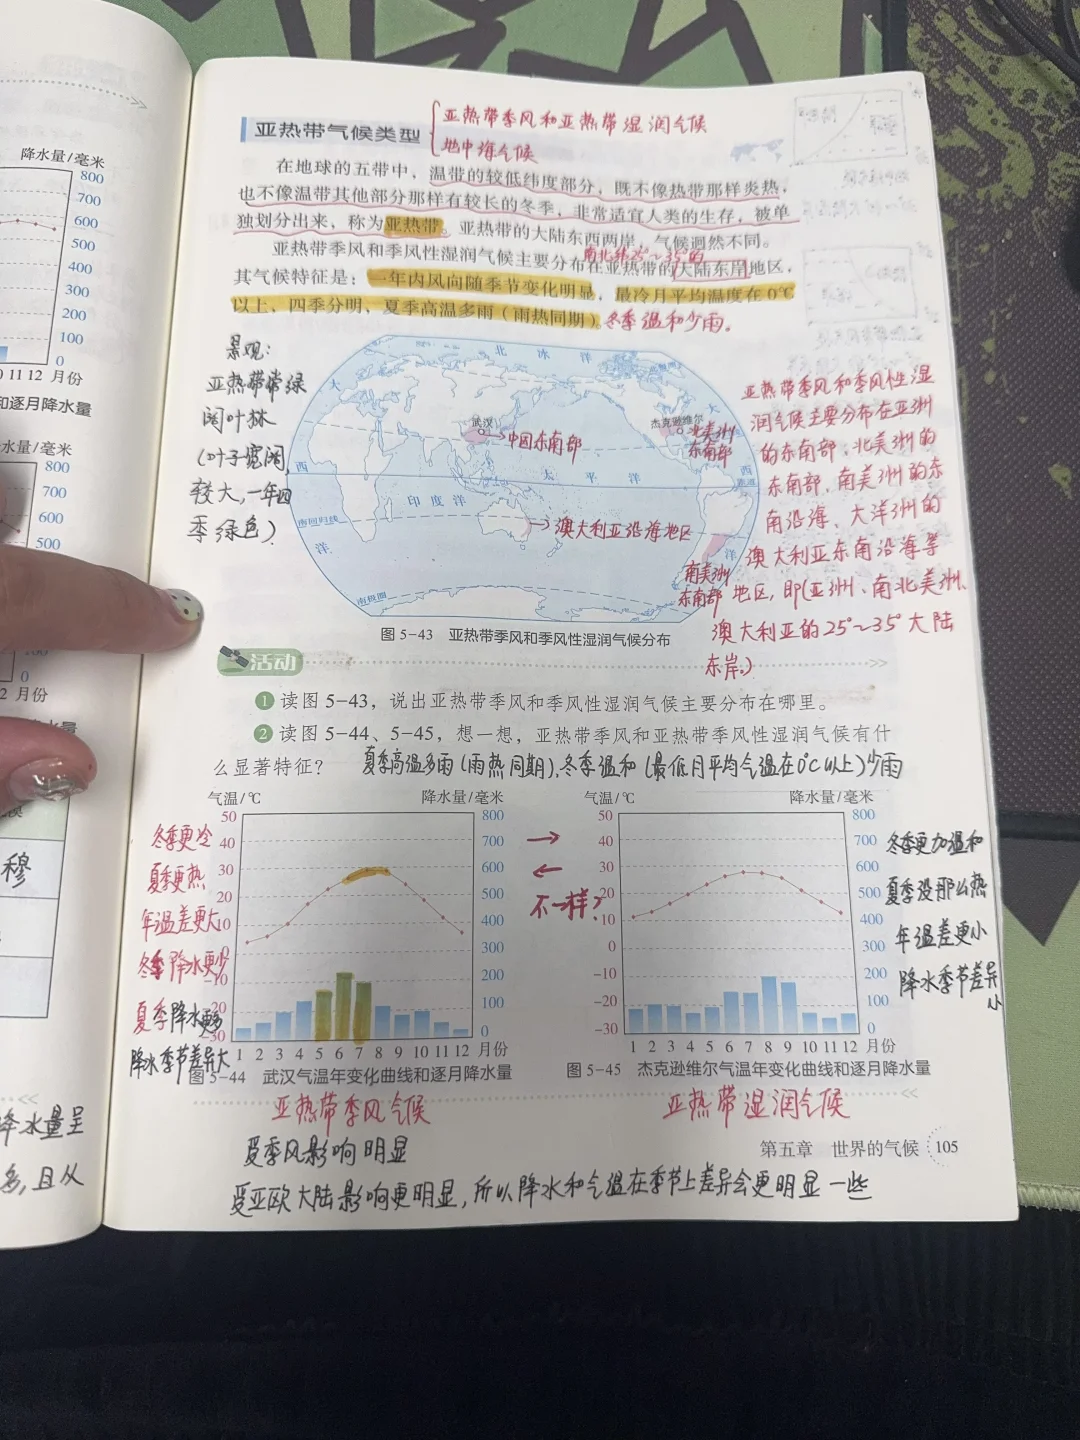 降水量/毫米
800
700
600
500
400
300
200
100
0
10 11 12 月份
和逐月降水量
水量/毫米
800
700
600
500
0
2 月份
穆
降水量呈
多,且从
亚热带气候类型
亚热带季风和亚热带湿润气候
地中海气候
在地球的五带中，温带的较低纬度部分，既不像热带那样炎热，
也不像温带其他部分那样有较长的冬季，非常适宜人类的生存，被单
独划分出来，称为亚热带。亚热带的大陆东西两岸，气候迥然不同。
亚热带季风和季风性湿润气候主要分布在亚热带的大陆东岸地区，
南北纬25°~35°的
其气候特征是：一年内风向随季节变化明显，最冷月平均温度在0℃
以上，四季分明，夏季高温多雨（雨热同期）。冬季温和少雨。
景观:
亚热带常绿
阔叶林
(叶子宽阔,
较大,一年四
季绿色)
北 冰 洋
大
西
洋
武汉
中国东南部
杰克逊维尔
北美洲
东南部
太 平 洋
印 度 洋
大
西
洋
赤道
南回归线
澳大利亚沿海地区
南美洲
东南部
南极圈
亚热带季风和季风性湿
润气候主要分布在亚洲
的东南部、北美洲的
东南部、南美洲的东
南沿海、大洋洲的
澳大利亚东南沿海等
地区,即(亚洲、南北美洲、
澳大利亚的25°~35°大陆
东岸。)
图 5-43 亚热带季风和季风性湿润气候分布
活动
1 读图 5-43，说出亚热带季风和季风性湿润气候主要分布在哪里。
2 读图 5-44、5-45，想一想，亚热带季风和亚热带季风性湿润气候有什
么显著特征？
夏季高温多雨(雨热同期),冬季温和(最低月平均气温在0℃以上)少雨
气温/℃ 降水量/毫米
50
40
30
20
10
0
-10
-20
-30
800
700
600
500
400
300
200
100
0
1 2 3 4 5 6 7 8 9 10 11 12 月份
图 5-44 武汉气温年变化曲线和逐月降水量
冬季更冷
夏季更热
年温差更大
冬季降水更少
夏季降水更多
降水季节差异大
不一样?
气温/℃ 降水量/毫米
50
40
30
20
10
0
-10
-20
-30
800
700
600
500
400
300
200
100
0
1 2 3 4 5 6 7 8 9 10 11 12 月份
图 5-45 杰克逊维尔气温年变化曲线和逐月降水量
冬季更加温和
夏季没那么热
年温差更小
降水季节差异
小
亚热带季风气候
亚热带湿润气候
受季风影响明显
第五章 世界的气候 105
受亚欧大陆影响更明显,所以降水和气温在季节上差异会更明显一些